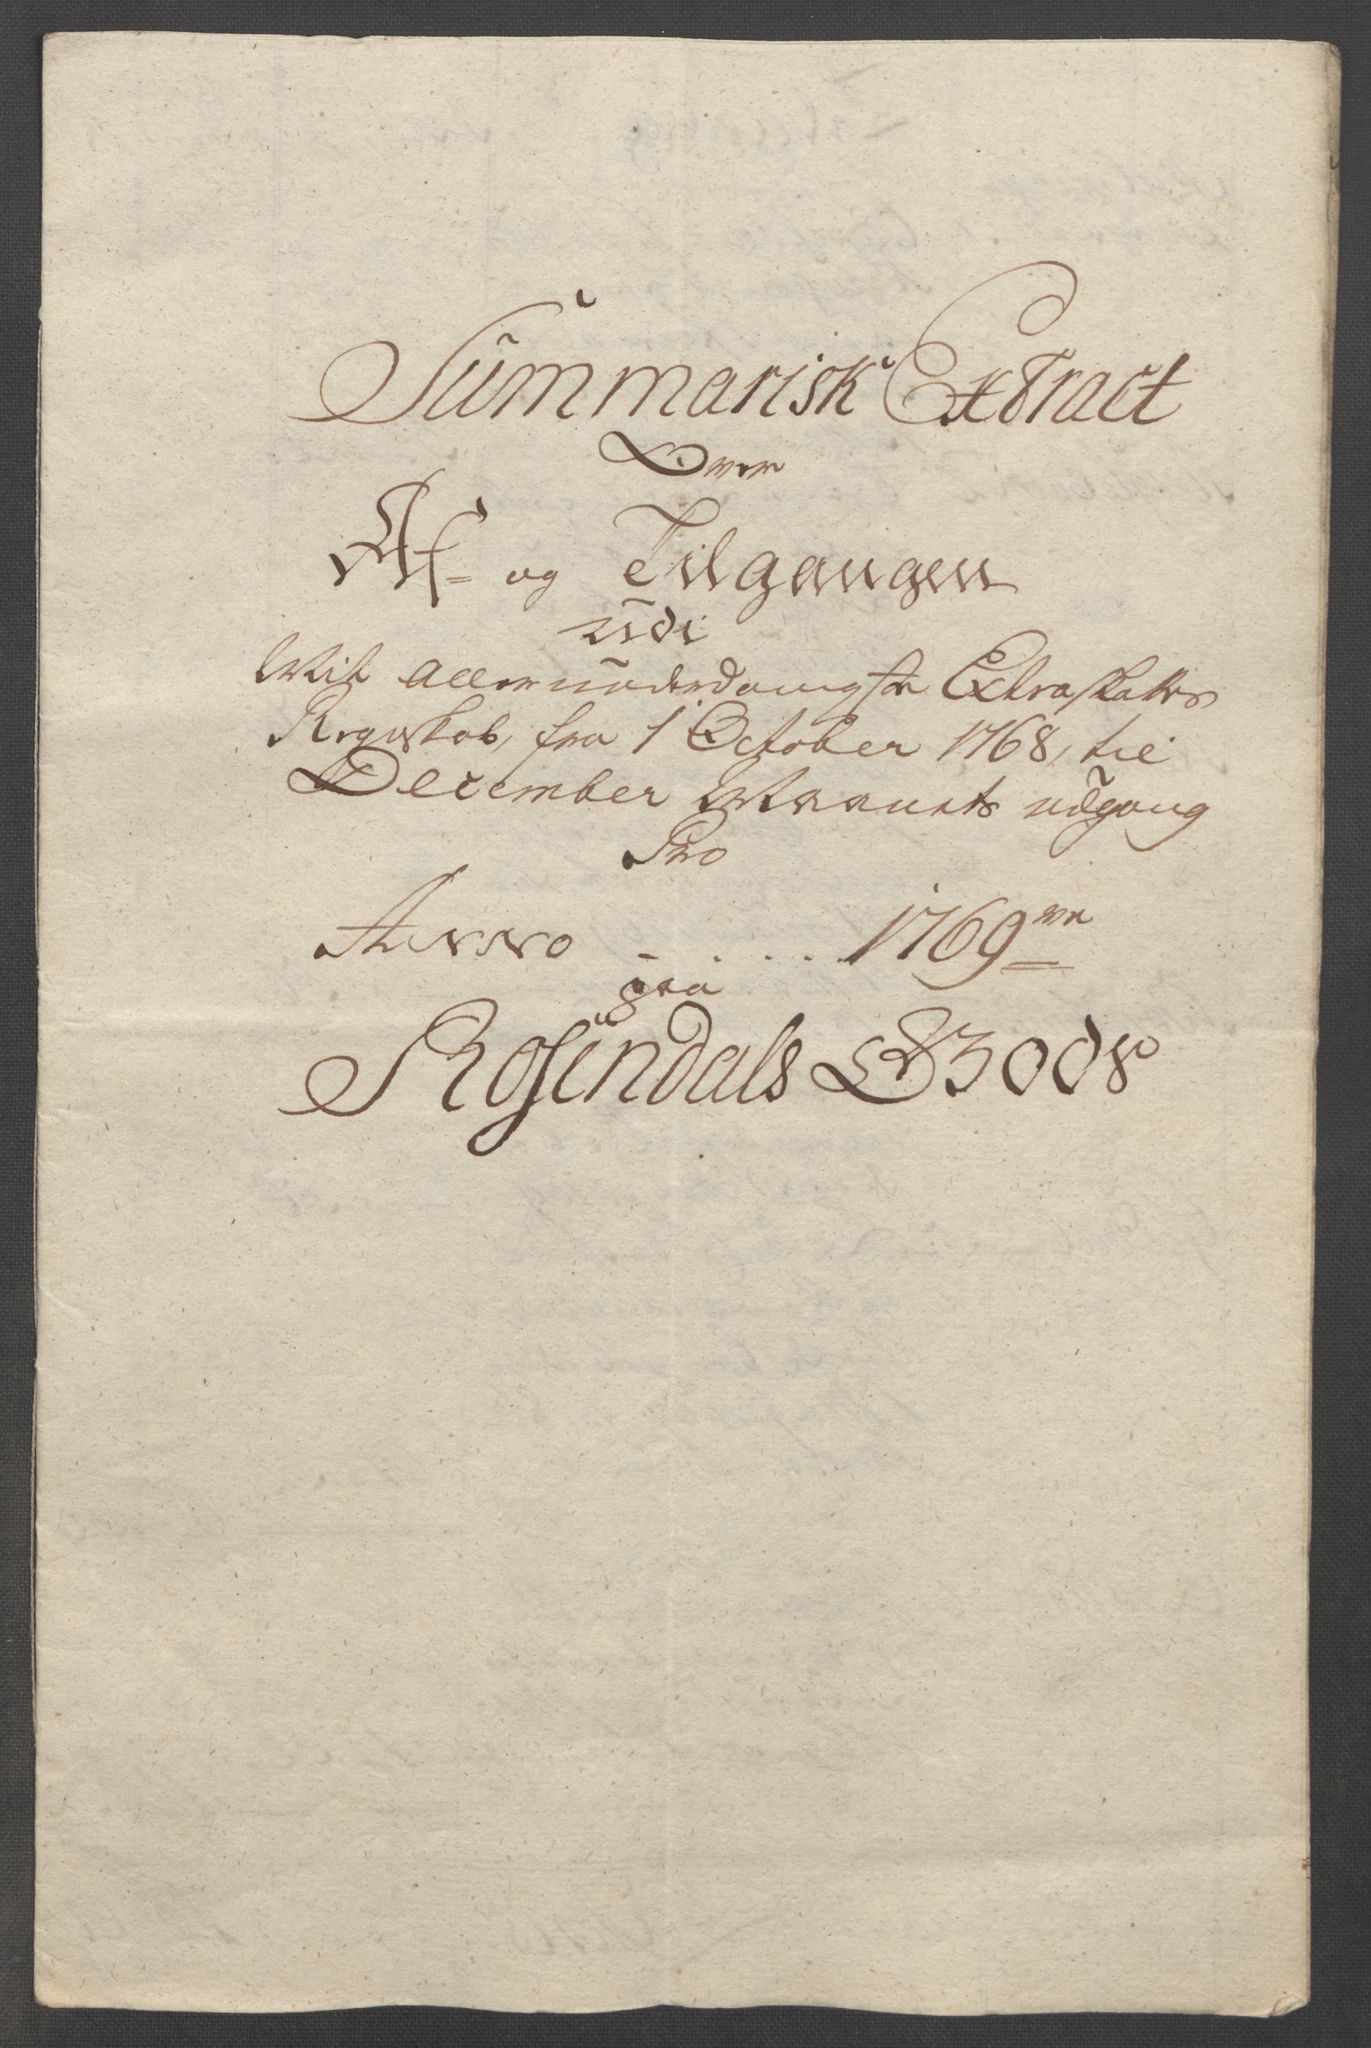 Summarisk Extract
Over
Af- og Tilgangen
udi
Mit allerunderdanigste Extraskatts
Regnskab, fra 1 October 1768, til
December Maanets udgang
Pro
Anno - . . . . 1769
paa
Rosendals Goods